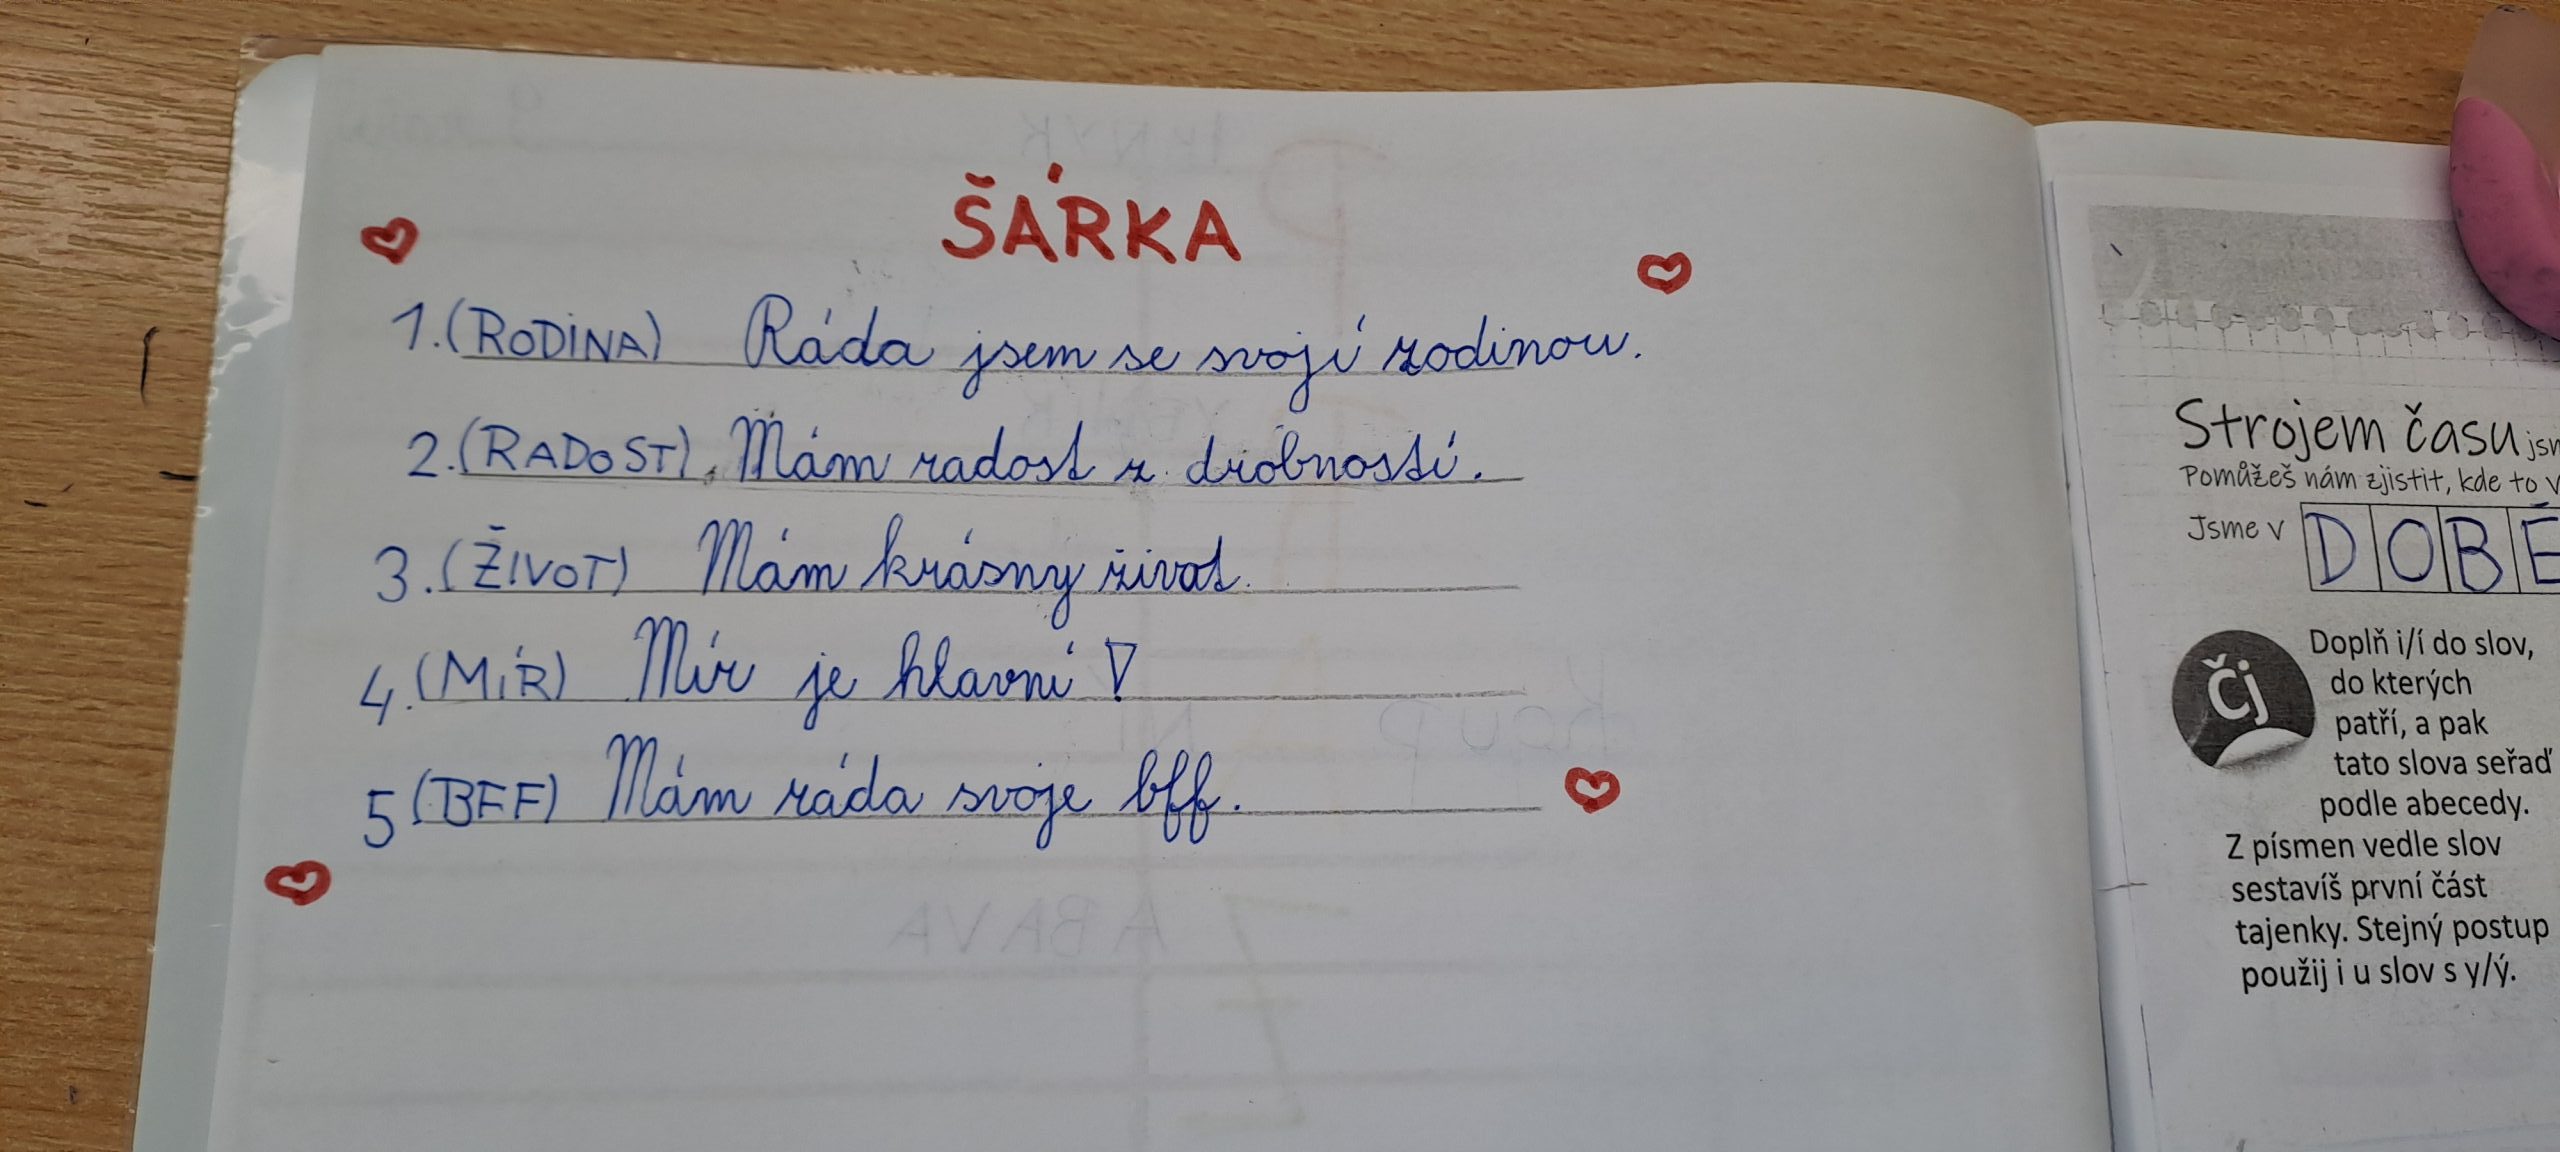 ŠÁRKA
1.(RODINA) Ráda jsem se svojí rodinou.
2.(RADOST) Mám radost z drobností.
3.(ŽIVOT) Mám krásny život.
4.(MÍR) Mír je hlavní!
5(BFF) Mám ráda svoje bff.
Strojem času
Pomůžeš nám zjistit, kde to
Jsme v DOBĚ
Čj
Doplň i/í do slov,
do kterých
patří, a pak
tato slova seřaď
podle abecedy.
Z písmen vedle slov
sestavíš první část
tajenky. Stejný postup
použij i u slov s y/ý.